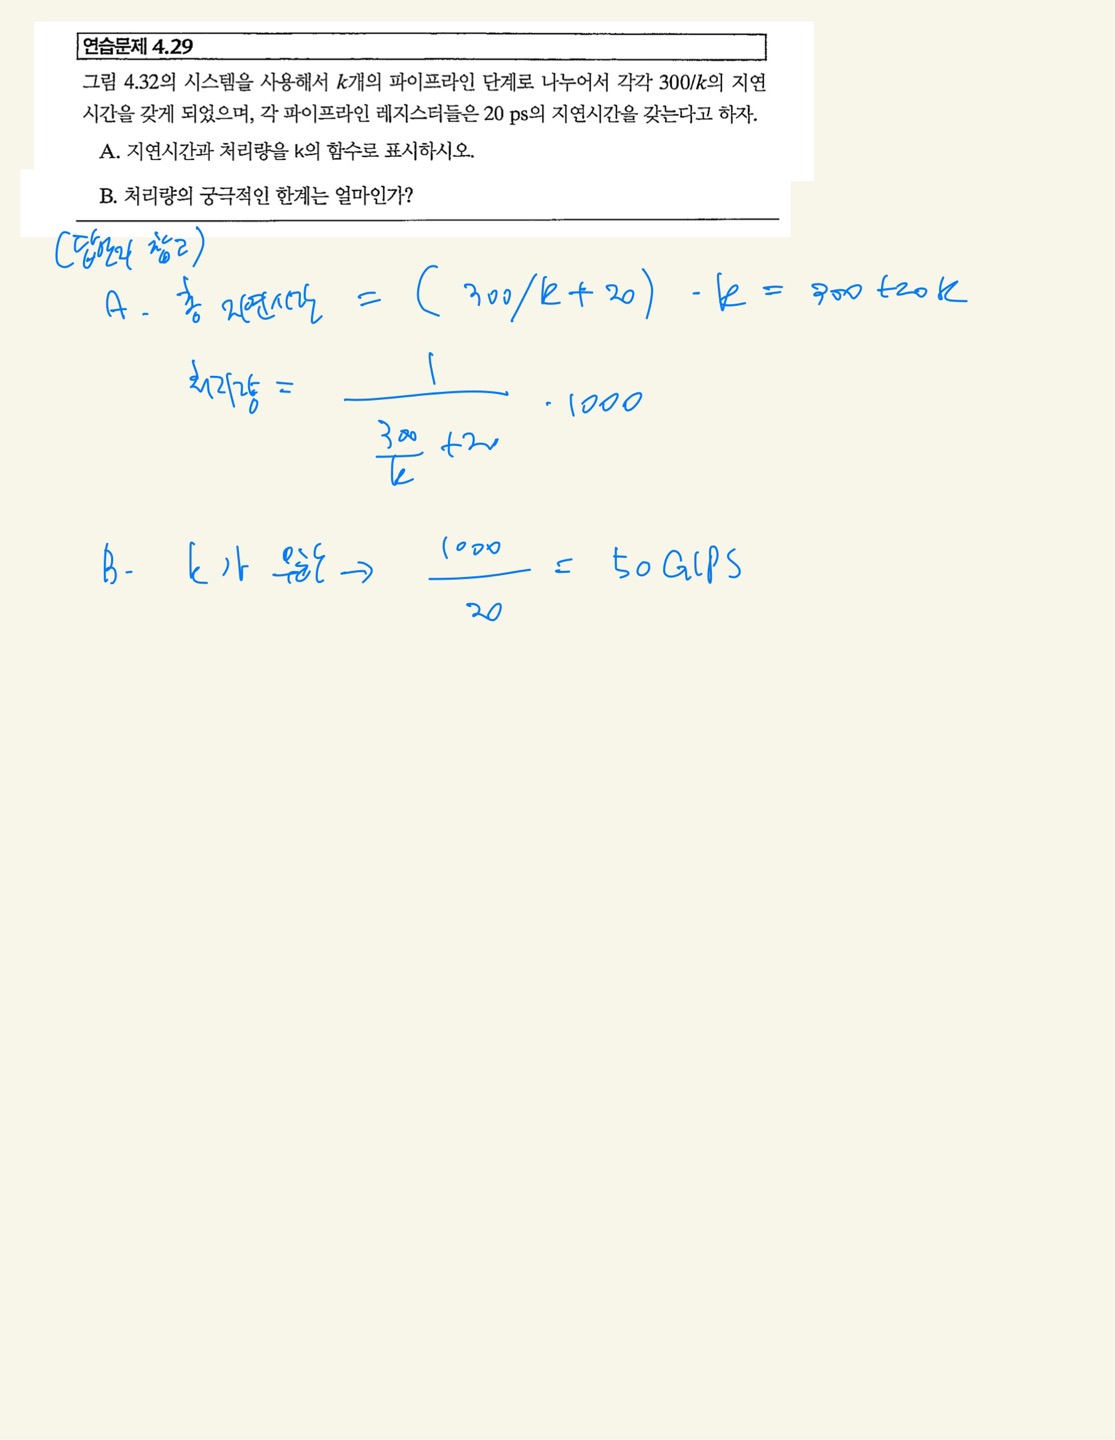 연습문제 4.29
그림 4.32의 시스템을 사용해서 k개의 파이프라인 단계로 나누어서 각각 300/k의 지연
시간을 갖게 되었으며, 각 파이프라인 레지스터들은 20 ps의 지연시간을 갖는다고 하자.
A. 지연시간과 처리량을 k의 함수로 표시하시오.
B. 처리량의 궁극적인 한계는 얼마인가?
(답안지 참고)
A. 총 지연시간 = (300/k + 20) · k = 300 + 20k
처리량 = 1 / (300/k + 20) · 1000
B. k가 무한 → 1000/20 = 50 GIPS